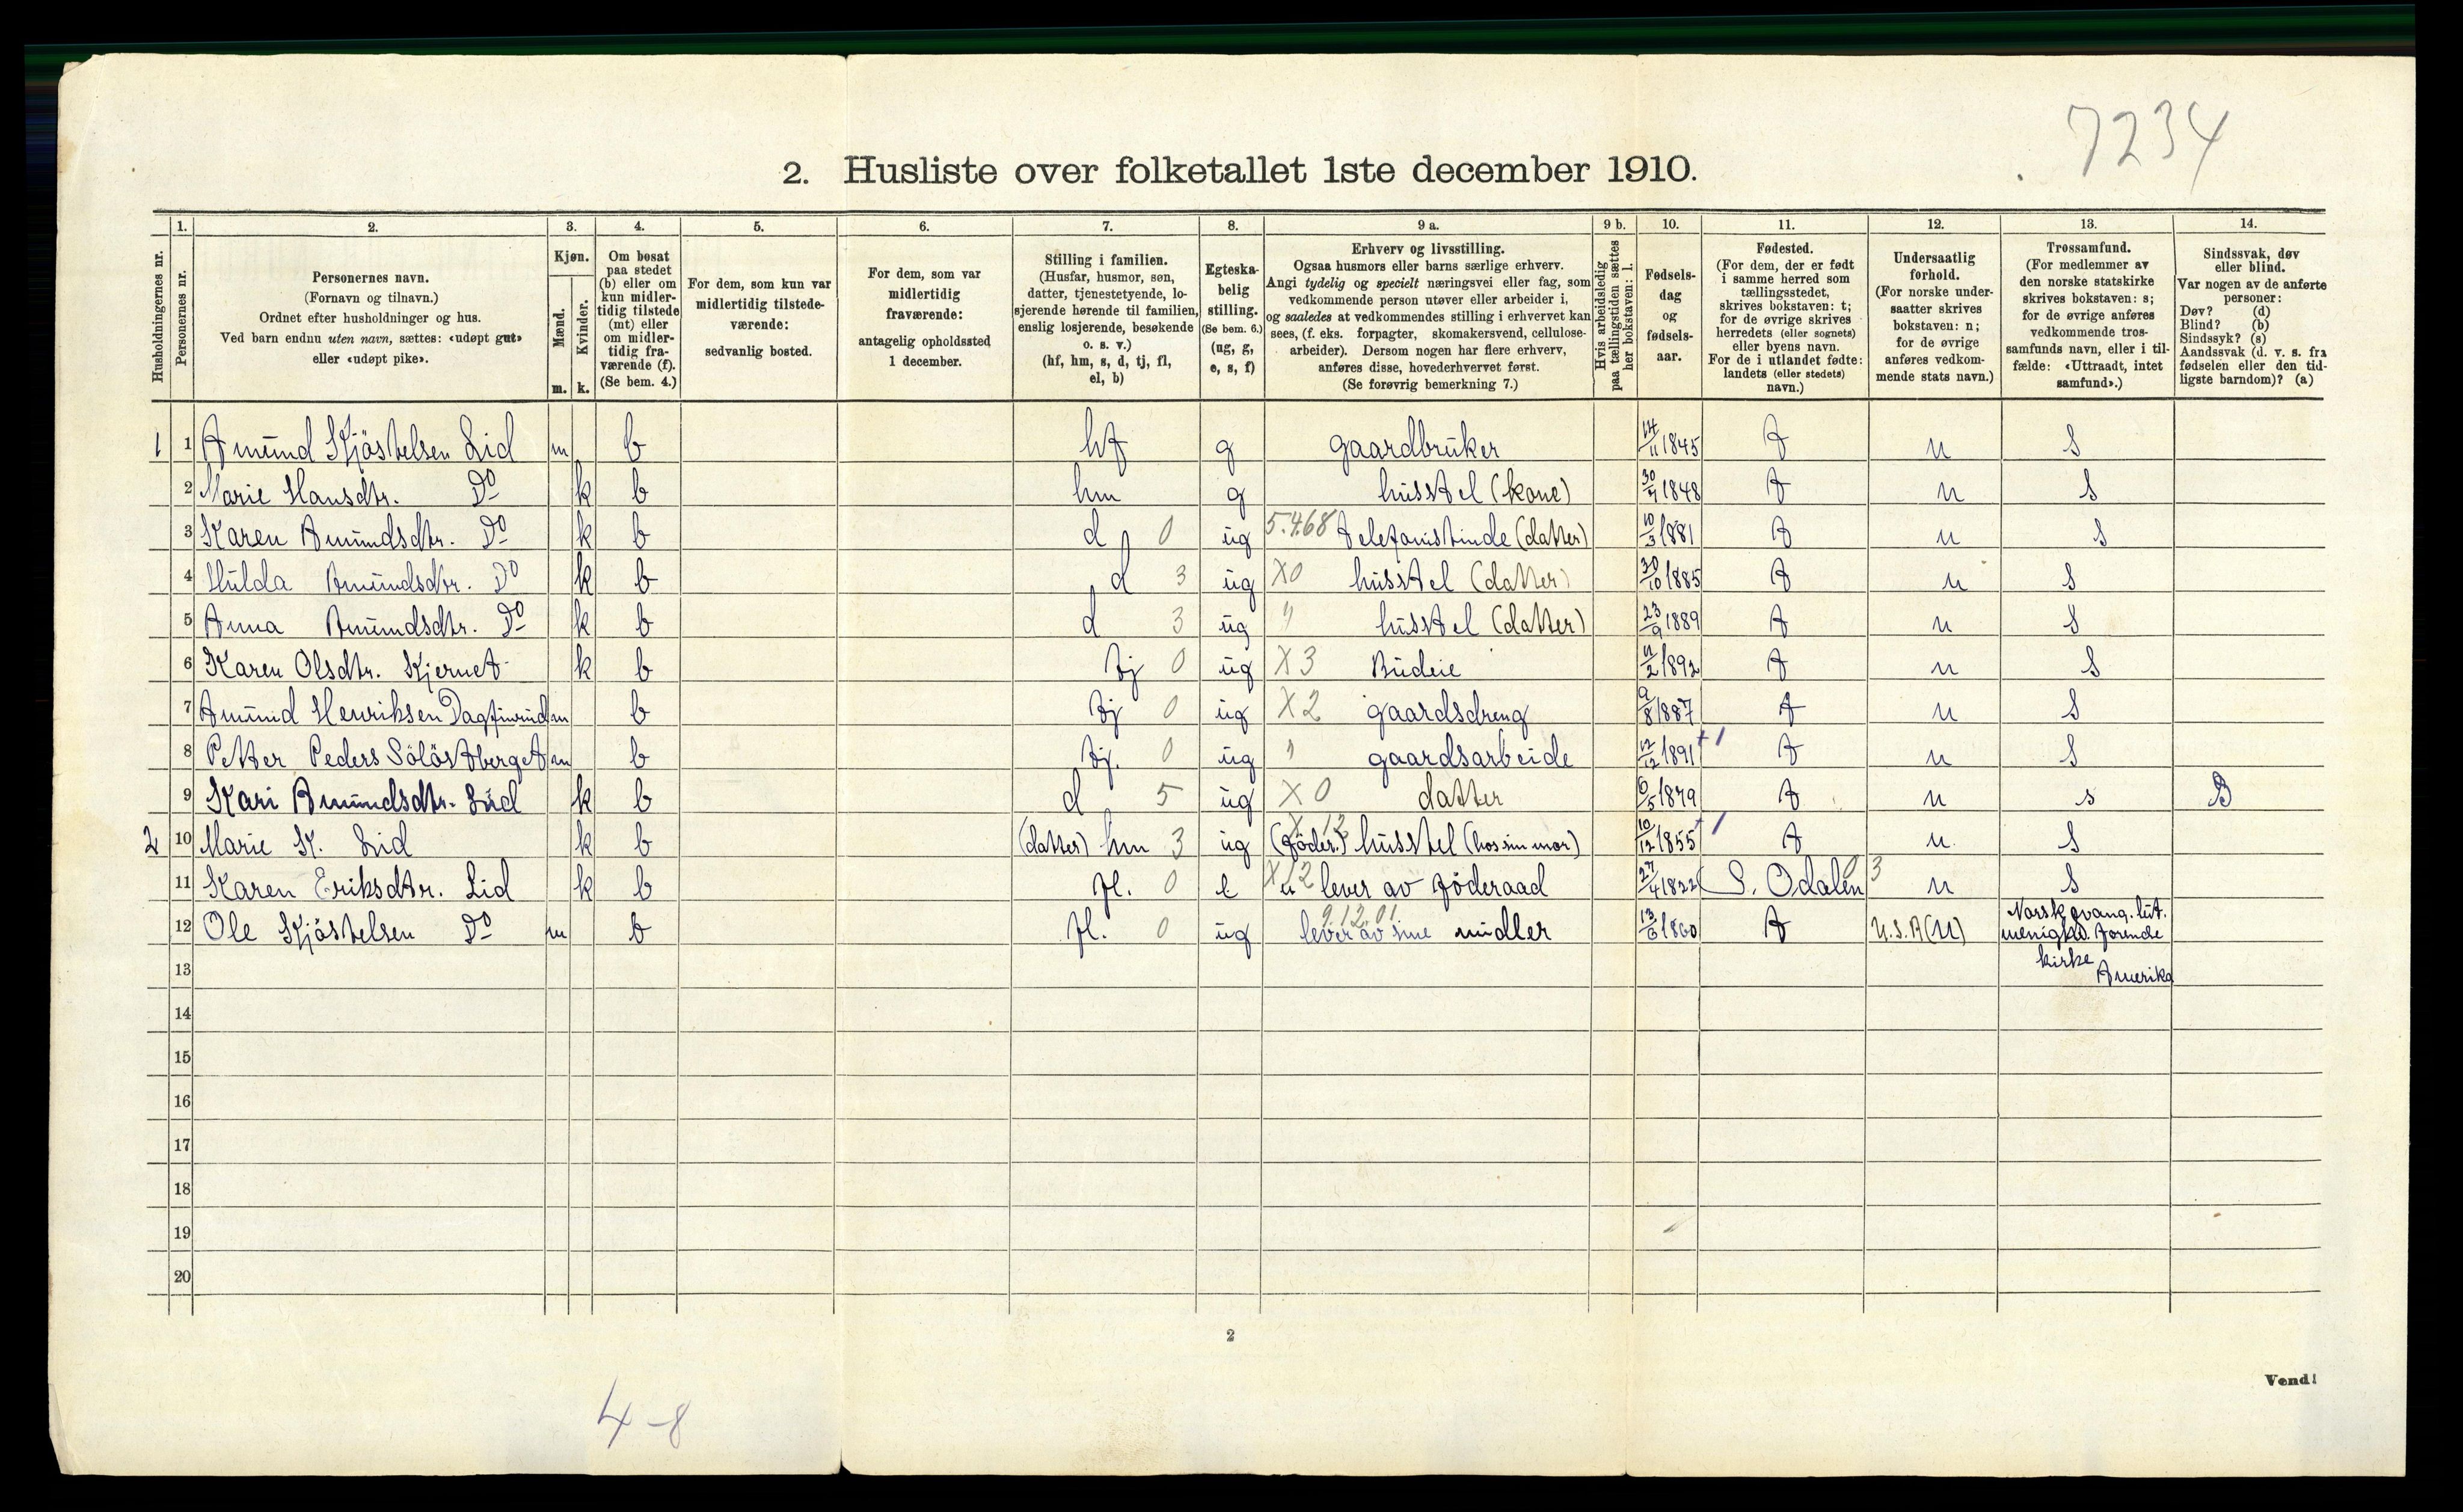 7234
2. Husliste over folketallet 1ste december 1910.
Husholdningernes nr.
1. Personernes nr.
2. Personernes navn.
(Fornavn og tilnavn.)
Ordnet efter husholdninger og hus.
Ved barn endnu uten navn, sættes: «udøpt gut»
eller «udøpt pike».
3. Kjøn.
Mænd. m.
Kvinder. k.
4. Om bosat
paa stedet
(b) eller om
kun midler-
tidig tilstede
(mt) eller
om midler-
tidig fra-
værende (f).
(Se bem. 4.)
5. For dem, som kun var
midlertidig tilstede-
værende:
sedvanlig bosted.
6. For dem, som var
midlertidig
fraværende:
antagelig opholdssted
1 december.
7. Stilling i familien.
(Husfar, husmor, søn,
datter, tjenestetyende, lo-
sjerende hørende til familien,
enslig losjerende, besøkende
o. s. v.)
(hf, hm, s, d, tj, fl,
el, b)
8. Egteska-
belig
stilling.
(Se bem. 6.)
(ug, g,
e, s, f)
9 a. Erhverv og livsstilling.
Ogsaa husmors eller barns særlige erhverv.
Angi tydelig og specielt næringsvei eller fag, som
vedkommende person utøver eller arbeider i,
og saaledes at vedkommendes stilling i erhvervet kan
sees, (f. eks. forpagter, skomakersvend, cellulose-
arbeider). Dersom nogen har flere erhverv,
anføres disse, hovederhvervet først.
(Se forøvrig bemerkning 7.)
9 b. Hvis arbeidsledig
paa tællingstiden sættes
her bokstaven: l.
10. Fødsels-
dag
og
fødsels-
aar.
11. Fødested.
(For dem, der er født
i samme herred som
tællingsstedet,
skrives bokstaven: t;
for de øvrige skrives
herredets (eller sognets)
eller byens navn.
For de i utlandet fødte:
landets (eller stedets)
navn.)
12. Undersaatlig
forhold.
(For norske under-
saatter skrives
bokstaven: n;
for de øvrige
anføres vedkom-
mende stats navn.)
13. Trossamfund.
(For medlemmer av
den norske statskirke
skrives bokstaven: s;
for de øvrige anføres
vedkommende tros-
samfunds navn, eller i til-
fælde: «Uttraadt, intet
samfund».)
14. Sindssvak, døv
eller blind.
Var nogen av de anførte
personer:
Døv? (d)
Blind? (b)
Sindssyk? (s)
Aandssvak (d. v. s. fra
fødselen eller den tid-
ligste barndom)? (a)
1 1 Amund Kjöstelsen Lid m b hf g gaardbruker 14/11 1845 t n s
2 Marie Hansdtr. Do k b hm g husstel (kone) 30/7 1848 t n s
3 Karen Amundsdtr. Do k b d 0 ug 5.468 telefonistinde (datter) 10/3 1881 t n s
4 Hulda Amundsdtr. Do k b d 3 ug X0 husstel (datter) 30/10 1885 t n s
5 Anna Amundsdtr. Do k b d 3 ug " husstel (datter) 23/9 1889 t n s
6 Karen Olsdtr. Kjernet k b tj 0 ug X3 Budeie /2 1892 t n s
7 Amund Henriksen Dagfinrud m b tj 0 ug X2 gaardsdreng 9/8 1887 t n s
8 Petter Peders Sölöstberget m b tj. 0 ug " gaardsarbeide 12/12 1891 +1 t n s
9 Kari Amundsdtr. Lid k b d 5 ug X0 datter 6/5 1879 t n s B
2 10 Marie K. Lid k b (datter) hm 3 ug X 12 (föder.) husstel (hos sin mor) 10/12 1855 +1 t n. s
11 Karen Eriksdtr. Lid k b fl. 0 e X12 lever av föderaad 27/4 1822 S. Odalen 03 n s
12 Ole Kjöstelsen Do m b fl. 0 ug 9.12.01 lever av sine midler 13/6 1860 t U.S.A (N) Norsk evang. lut.
menighed. forende
13 kirke
Amerika
14
15
16
17
18
19
20
2
Vend!
4-8